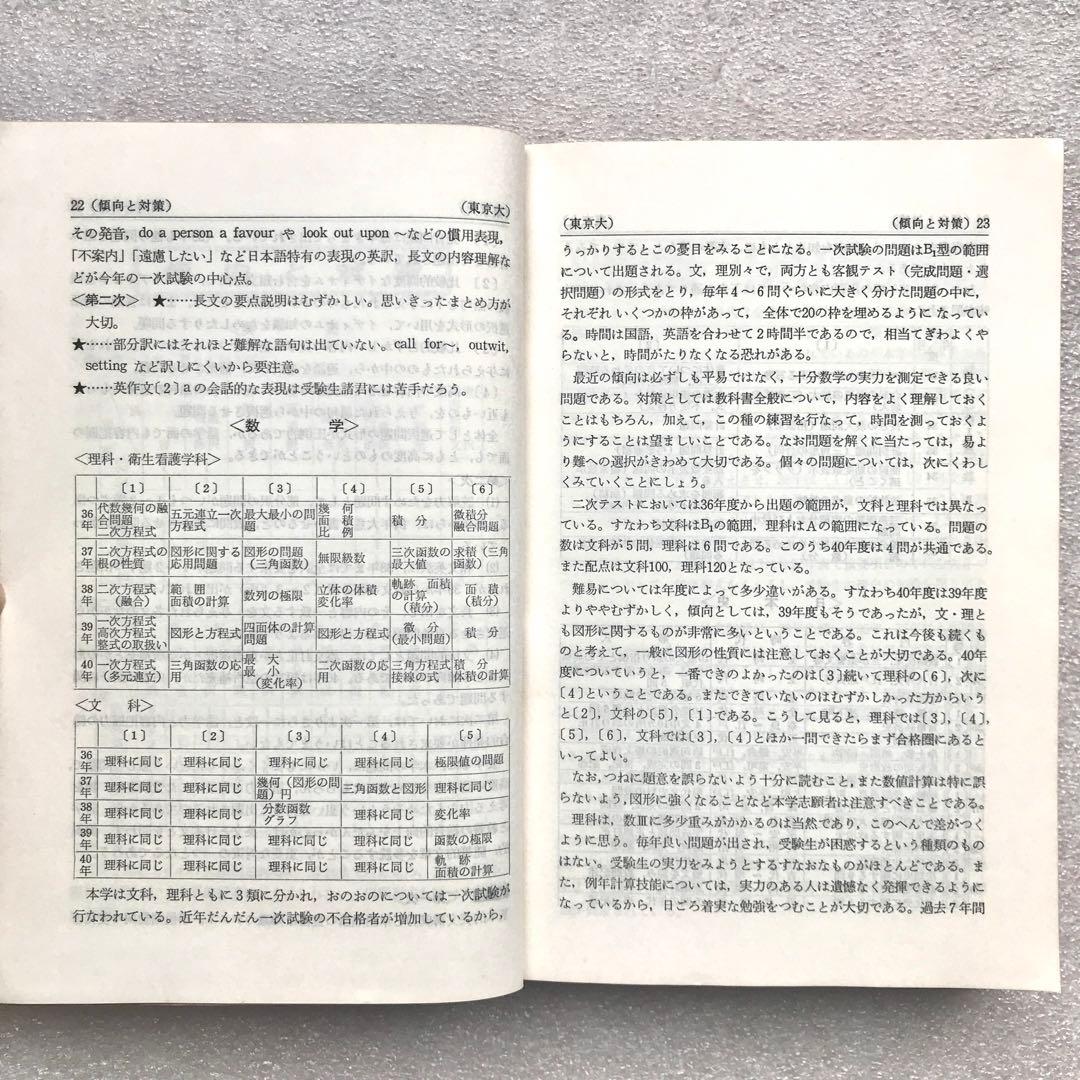 22（傾向と対策）　（東京大）
その発音，do a person a favour や look out upon ～などの慣用表現，
「不案内」「遠慮したい」など日本語特有の表現の英訳，長文の内容理解な
どが今年の一次試験の中心点。
＜第二次＞　★……長文の要点説明はむずかしい。思いきったまとめ方が
大切。
★……部分訳にはそれほど難解な語句は出ていない。call for～，outwit，
setting など訳しにくいから要注意。
★……英作文〔2〕aの会話的な表現は受験生諸君には苦手だろう。
＜数　　学＞
＜理科・衛生看護学科＞
〔1〕　〔2〕　〔3〕　〔4〕　〔5〕　〔6〕
36年　代数幾何の融合問題 二次方程式　五元連立一次方程式　最大最小の問題　幾何 面積 比例　積分　微積分融合問題
37年　二次方程式の根の性質　図形に関する応用問題　図形の問題（三角函数）　無限級数　三次函数の最大値　求積（三角函数）
38年　二次方程式（融合）　範囲 面積の計算　数列の極限　立体の体積 変化率　軌跡 面積の計算（積分）　面積（積分）
39年　一次方程式 高次方程式 整式の取扱い　図形と方程式　四面体の計算問題　図形と方程式　微分（最小問題）　積分
40年　一次方程式（多元連立）　三角函数の応用　最大 最小（変化率）　二次函数の応用　三角方程式 接線の式　積分 体積の計算
＜文　　科＞
〔1〕　〔2〕　〔3〕　〔4〕　〔5〕
36年　理科に同じ　理科に同じ　理科に同じ　理科に同じ　極限値の問題
37年　理科に同じ　理科に同じ　幾何（図形の問題）円　三角函数と図形　理科に同じ
38年　理科に同じ　理科に同じ　分数函数 グラフ　理科に同じ　変化率
39年　理科に同じ　理科に同じ　理科に同じ　理科に同じ　函数の極限
40年　理科に同じ　理科に同じ　理科に同じ　理科に同じ　軌跡 面積の計算
本学は文科，理科ともに3類に分かれ，おのおのについては一次試験が
行なわれている。近年だんだん一次試験の不合格者が増加しているから，
（東京大）　（傾向と対策）23
うっかりするとこの憂目をみることになる。一次試験の問題はB₁型の範囲
について出題される。文，理別々で，両方とも客観テスト（完成問題・選
択問題）の形式をとり，毎年4～6問ぐらいに大きく分けた問題の中に，
それぞれいくつかの枠があって，全体で20の枠を埋めるようになってい
る。時間は国語，英語を合わせて2時間半であるので，相当てぎわよくや
らないと，時間がたりなくなる恐れがある。
最近の傾向は必ずしも平易ではなく，十分数学の実力を測定できる良い
問題である。対策としては教科書全般について，内容をよく理解しておく
ことはもちろん，加えて，この種の練習を行なって，時間を測っておくよ
うにすることは望ましいことである。なお問題を解くに当たっては，易よ
り難への選択がきわめて大切である。個々の問題については，次にくわし
くみていくことにしよう。
二次テストにおいては36年度から出題の範囲が，文科と理科では異なっ
ている。すなわち文科はB₁の範囲，理科はAの範囲になっている。問題の
数は文科が5問，理科は6問である。このうち40年度は4問が共通である。
また配点は文科100，理科120となっている。
難易については年度によって多少違いがある。すなわち40年度は39年度
よりややむずかしく，傾向としては，39年度もそうであったが，文・理と
も図形に関するものが非常に多いということである。これは今後も続くも
のと考えて，一般に図形の性質には注意しておくことが大切である。40年
度についていうと，一番できのよかったのは〔3〕続いて理科の〔6〕，次に
〔4〕ということである。またできていないのはむずかしかった方からいう
と〔2〕，文科の〔5〕，〔1〕である。こうして見ると，理科では〔3〕，〔4〕，
〔5〕，〔6〕，文科では〔3〕，〔4〕とほか一問できたらまず合格圏にあると
いってよい。
なお，つねに題意を誤らないよう十分に読むこと，また数値計算は特に誤
らないよう，図形に強くなることなど本学志願者は注意すべきことである。
理科は，数Ⅲに多少重みがかかるのは当然であり，このへんで差がつく
ように思う。毎年良い問題が出され，受験生が困惑するという種類のもの
はない。受験生の実力をみようとするすなおなものがほとんどである。ま
た，例年計算技能については，実力のある人は遺憾なく発揮できるように
なっているから，日ごろ着実な勉強をつむことが大切である。過去7年間